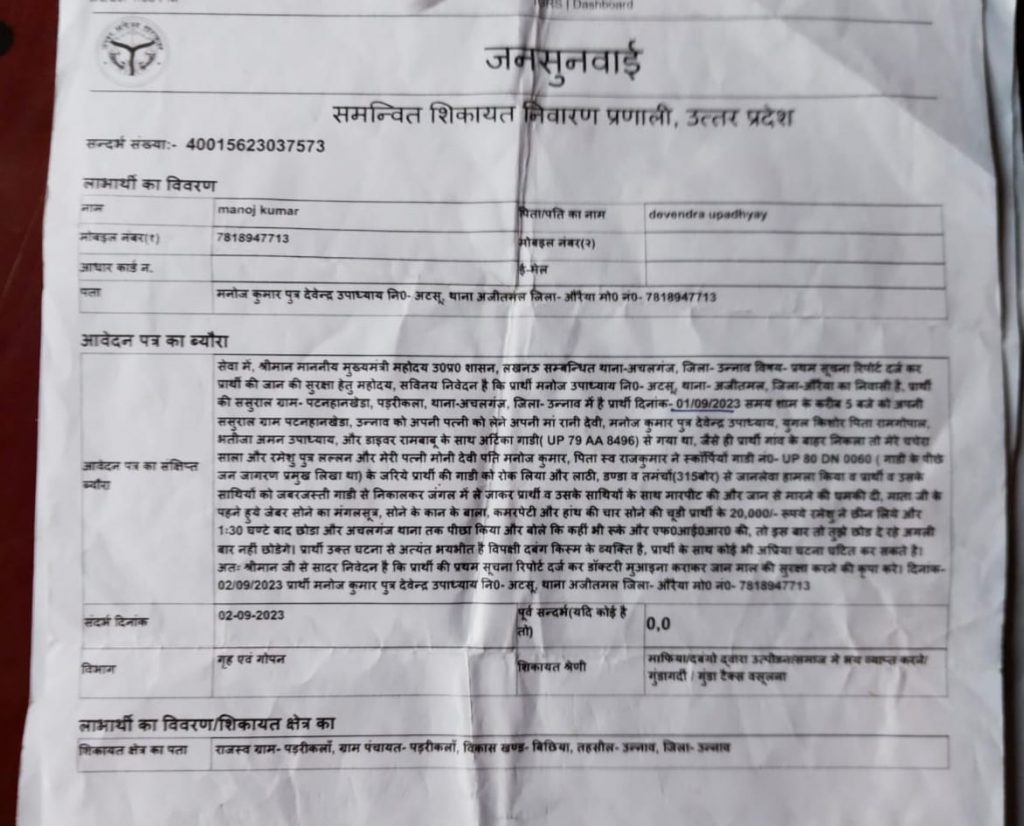 IGRS | Dashboard
जनसुनवाई
समन्वित शिकायत निवारण प्रणाली, उत्तर प्रदेश
सन्दर्भ संख्या:- 40015623037573
लाभार्थी का विवरण
नाम manoj kumar पिता/पति का नाम devendra upadhyay
मोबइल नंबर(१) 7818947713 मोबइल नंबर(२)
आधार कार्ड न. ई-मेल
पता मनोज कुमार पुत्र देवेन्द्र उपाध्याय नि0- अटसू, थाना अजीतमल जिला- औरैया मो0 नं0- 7818947713
आवेदन पत्र का ब्यौरा
आवेदन पत्र का संक्षिप्त ब्यौरा
सेवा में, श्रीमान माननीय मुख्यमंत्री महोदय उ0प्र0 शासन, लखनऊ सम्बन्धित थाना-अचलगंज, जिला- उन्नाव विषय- प्रथम सूचना रिपोर्ट दर्ज कर
प्रार्थी की जान की सुरक्षा हेतु महोदय, सविनय निवेदन है कि प्रार्थी मनोज उपाध्याय नि0- अटसू, थाना- अजीतमल, जिला-औरैया का निवासी है, प्रार्थी
की ससुराल ग्राम- पटनहानखेडा, पड़रीकला, थाना-अचलगंज, जिला- उन्नाव में है प्रार्थी दिनांक- 01/09/2023 समय शाम के करीब 5 बजे को अपनी
ससुराल ग्राम पटनहानखेडा, उन्नाव को अपनी पत्नी को लेने अपनी मां रानी देवी, मनोज कुमार पुत्र देवेन्द्र उपाध्याय, युगल किशोर पिता रामगोपाल,
भतीजा अमन उपाध्याय, और डाइवर रामबाबू के साथ अर्टिका गाडी( UP 79 AA 8496) से गया था, जैसे ही प्रार्थी गांव के बाहर निकला तो मेरे चचेरा
साला और रमेशु पुत्र लल्लन और मेरी पत्नी मोनी देवी पति मनोज कुमार, पिता स्व राजकुमार ने स्कॉर्पियों गाडी नं0- UP 80 DN 0060 ( गाडी के पीछे
जन जागरण प्रमुख लिखा था) के जरिये प्रार्थी की गाडी को रोक लिया और लाठी, डण्डा व तमंचों(315बोर) से जानलेवा हामला किया व प्रार्थी व उसके
साथियों को जबरजस्ती गाडी से निकालकर जंगल में ले जाकर प्रार्थी व उसके साथियों के साथ मारपीट की और जान से मारने की धमकी दी, माता जी के
पहने हुये जेबर सोने का मंगलसूत्र, सोने के कान के बाला, कमरपेटी और हांथ की चार सोने की चूडी प्रार्थी के 20,000/- रूपये रमेशु ने छीन लिये और
1:30 घण्टे बाद छोडा और अचलगंज थाना तक पीछा किया और बोले कि कहीं भी रुके और एफ0आई0आर0 की, तो इस बार तो तुझे छोड दे रहे अगली
बार नही छोडेगे। प्रार्थी उक्त घटना से अत्यंत भयभीत है विपक्षी दबंग किस्म के व्यक्ति है, प्रार्थी के साथ कोई भी अप्रिया घटना घटित कर सकते है।
अतः श्रीमान जी से सादर निवेदन है कि प्रार्थी की प्रथम सूचना रिपोर्ट दर्ज कर डॉक्टरी मुआइना कराकर जान माल की सुरक्षा करने की कृपा करे। दिनांक-
02/09/2023 प्रार्थी मनोज कुमार पुत्र देवेन्द्र उपाध्याय नि0- अटसू, थाना अजीतमल जिला- औरैया मो0 नं0- 7818947713
संदर्भ दिनांक 02-09-2023 पूर्व सन्दर्भ(यदि कोई है तो) 0,0
विभाग गृह एवं गोपन शिकायत श्रेणी माफिया/दबंगो द्वारा उत्पीडन/समाज में भय व्याप्त करने/
गुंडागर्दी / गुंडा टैक्स वसूलना
लाभार्थी का विवरण/शिकायत क्षेत्र का
शिकायत क्षेत्र का पता राजस्व ग्राम- पड़रीकलाँ, ग्राम पंचायत- पड़रीकलाँ, विकास खण्ड- बिछिया, तहसील- उन्नाव, जिला- उन्नाव